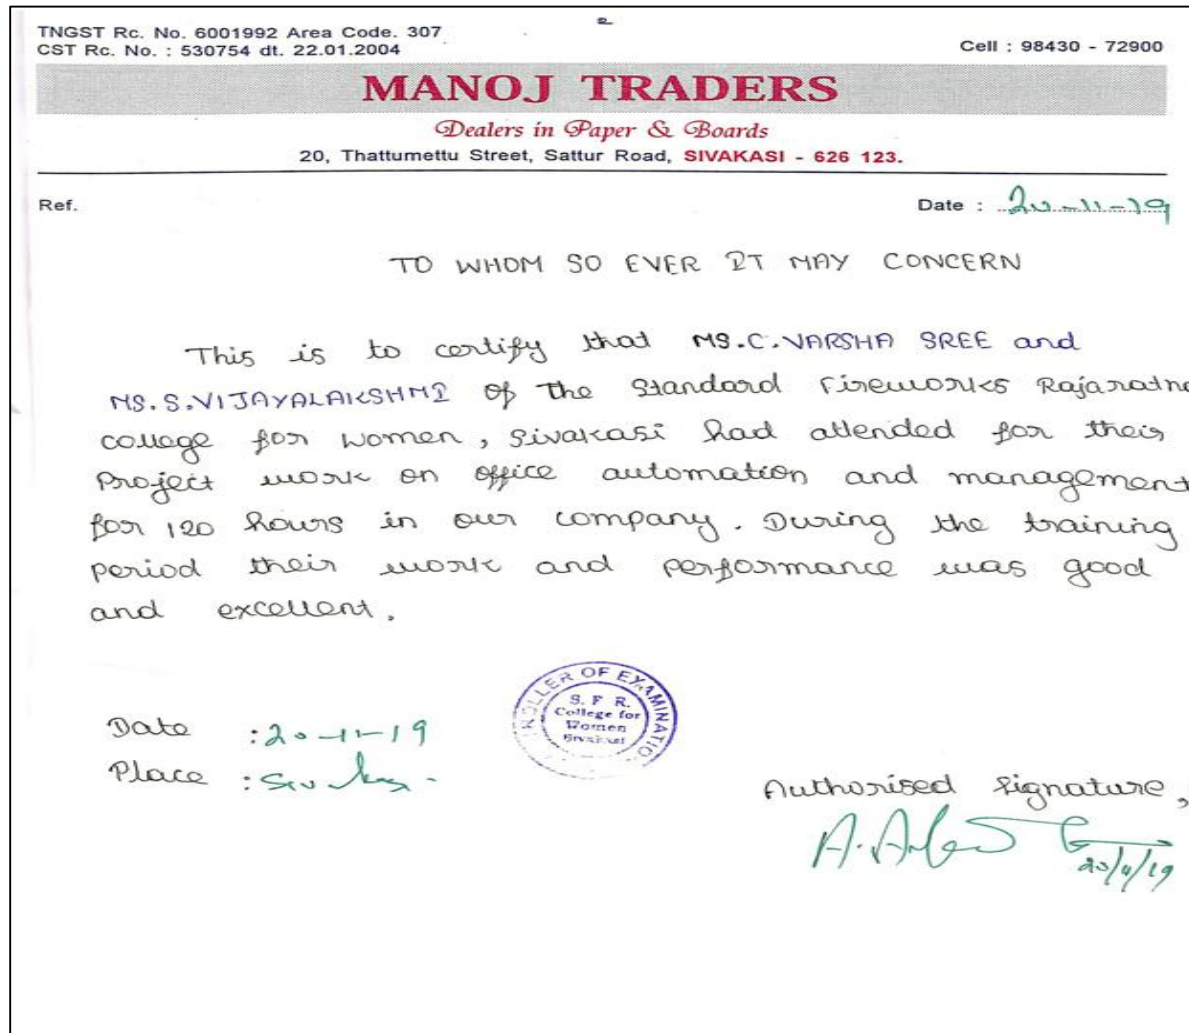 TNGST Rc. No. 6001992 Area Code. 307
CST Rc. No. : 530754 dt. 22.01.2004
Cell : 98430 - 72900
MANOJ TRADERS
Dealers in Paper & Boards
20, Thattumettu Street, Sattur Road, SIVAKASI - 626 123.
Ref.
Date : 20-11-19
TO WHOM SO EVER IT MAY CONCERN
This is to certify that MS.C.VARSHA SREE and
MS.S.VIJAYALAKSHMI of the Standard Fireworks Rajaratna
college for women, Sivakasi had attended for their
Project work on office automation and management
for 120 hours in our company. During the training
period their work and performance was good
and excellent.
ROLLER OF EXAMINATIO
S. F R.
College for
Women
Sivakasi
Date : 20-11-19
Place :
Authorised Signature,
20/11/19